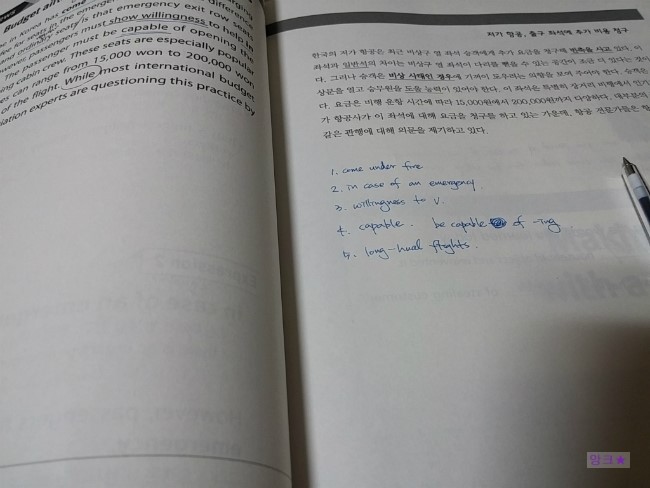 Budget air
in Korea has come
differently
for seats in the emergency exit row seats
ordinary seats is that emergency exit row seats
passengers must show willingness to help
The passenger must be capable of opening th
ng cabin crew. These seats are especially popular
es can range from 15,000 won to 200,000 won
of the flight. While most international budget
iation experts are questioning this practice by
저가 항공, 출구 좌석에 추가 비용 청구
한국의 저가 항공은 최근 비상구 열 좌석 승객에게 추가 요금을 청구해 반축을 사고 있다. 이
좌석과 일반석의 차이는 비상구 열 좌석이 다리를 뻗을 수 있는 공간이 조금 더 있다는 것이
다. 그러나 승객은 비상 사태인 경우에 기꺼이 도우려는 의향을 보여 주어야 한다. 승객은
상문을 열고 승무원을 도울 능력이 있어야 한다. 이 좌석은 특별히 장거리 비행에서 인기
다. 요금은 비행 운항 시간에 따라 15,000원에서 200,000원까지 다양하다. 대부분의
가 항공사가 이 좌석에 대해 요금을 청구를 하고 있는 가운데, 항공 전문가들은
같은 관행에 대해 의문을 제기하고 있다.
1. come under fire
2. in case of an emergency.
3. willingness to V.
4. capable. be capable of -ing
5. long-haul flights.
Expression 2
In case of an
However, pas
emergency
맘크★